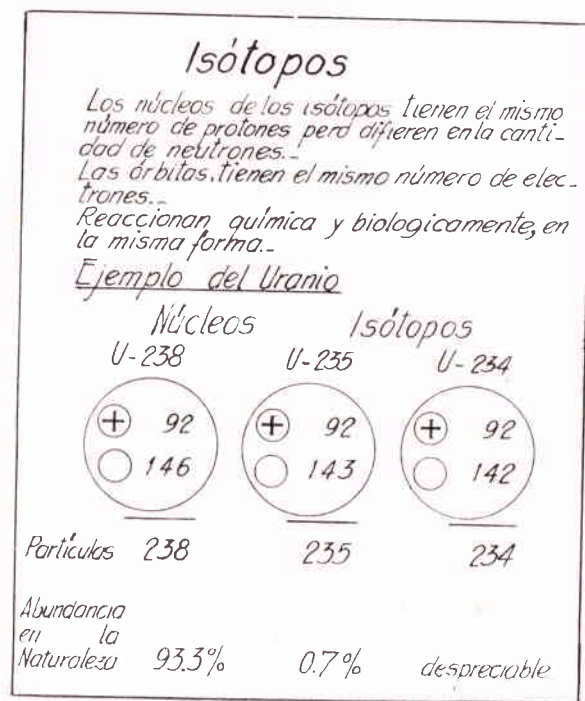 Isótopos
Los núcleos de los isótopos tienen el mismo
número de protones pero difieren en la canti-
dad de neutrones..
Las órbitas, tienen el mismo número de elec-
trones..
Reaccionan química y biologicamente, en
la misma forma..
Ejemplo del Uranio
Núcleos Isótopos
U-238 U-235 U-234
+ 92 + 92 + 92
146 143 142
Partículas 238 235 234
Abundancia
en la
Naturaleza 93.3% 0.7% despreciable